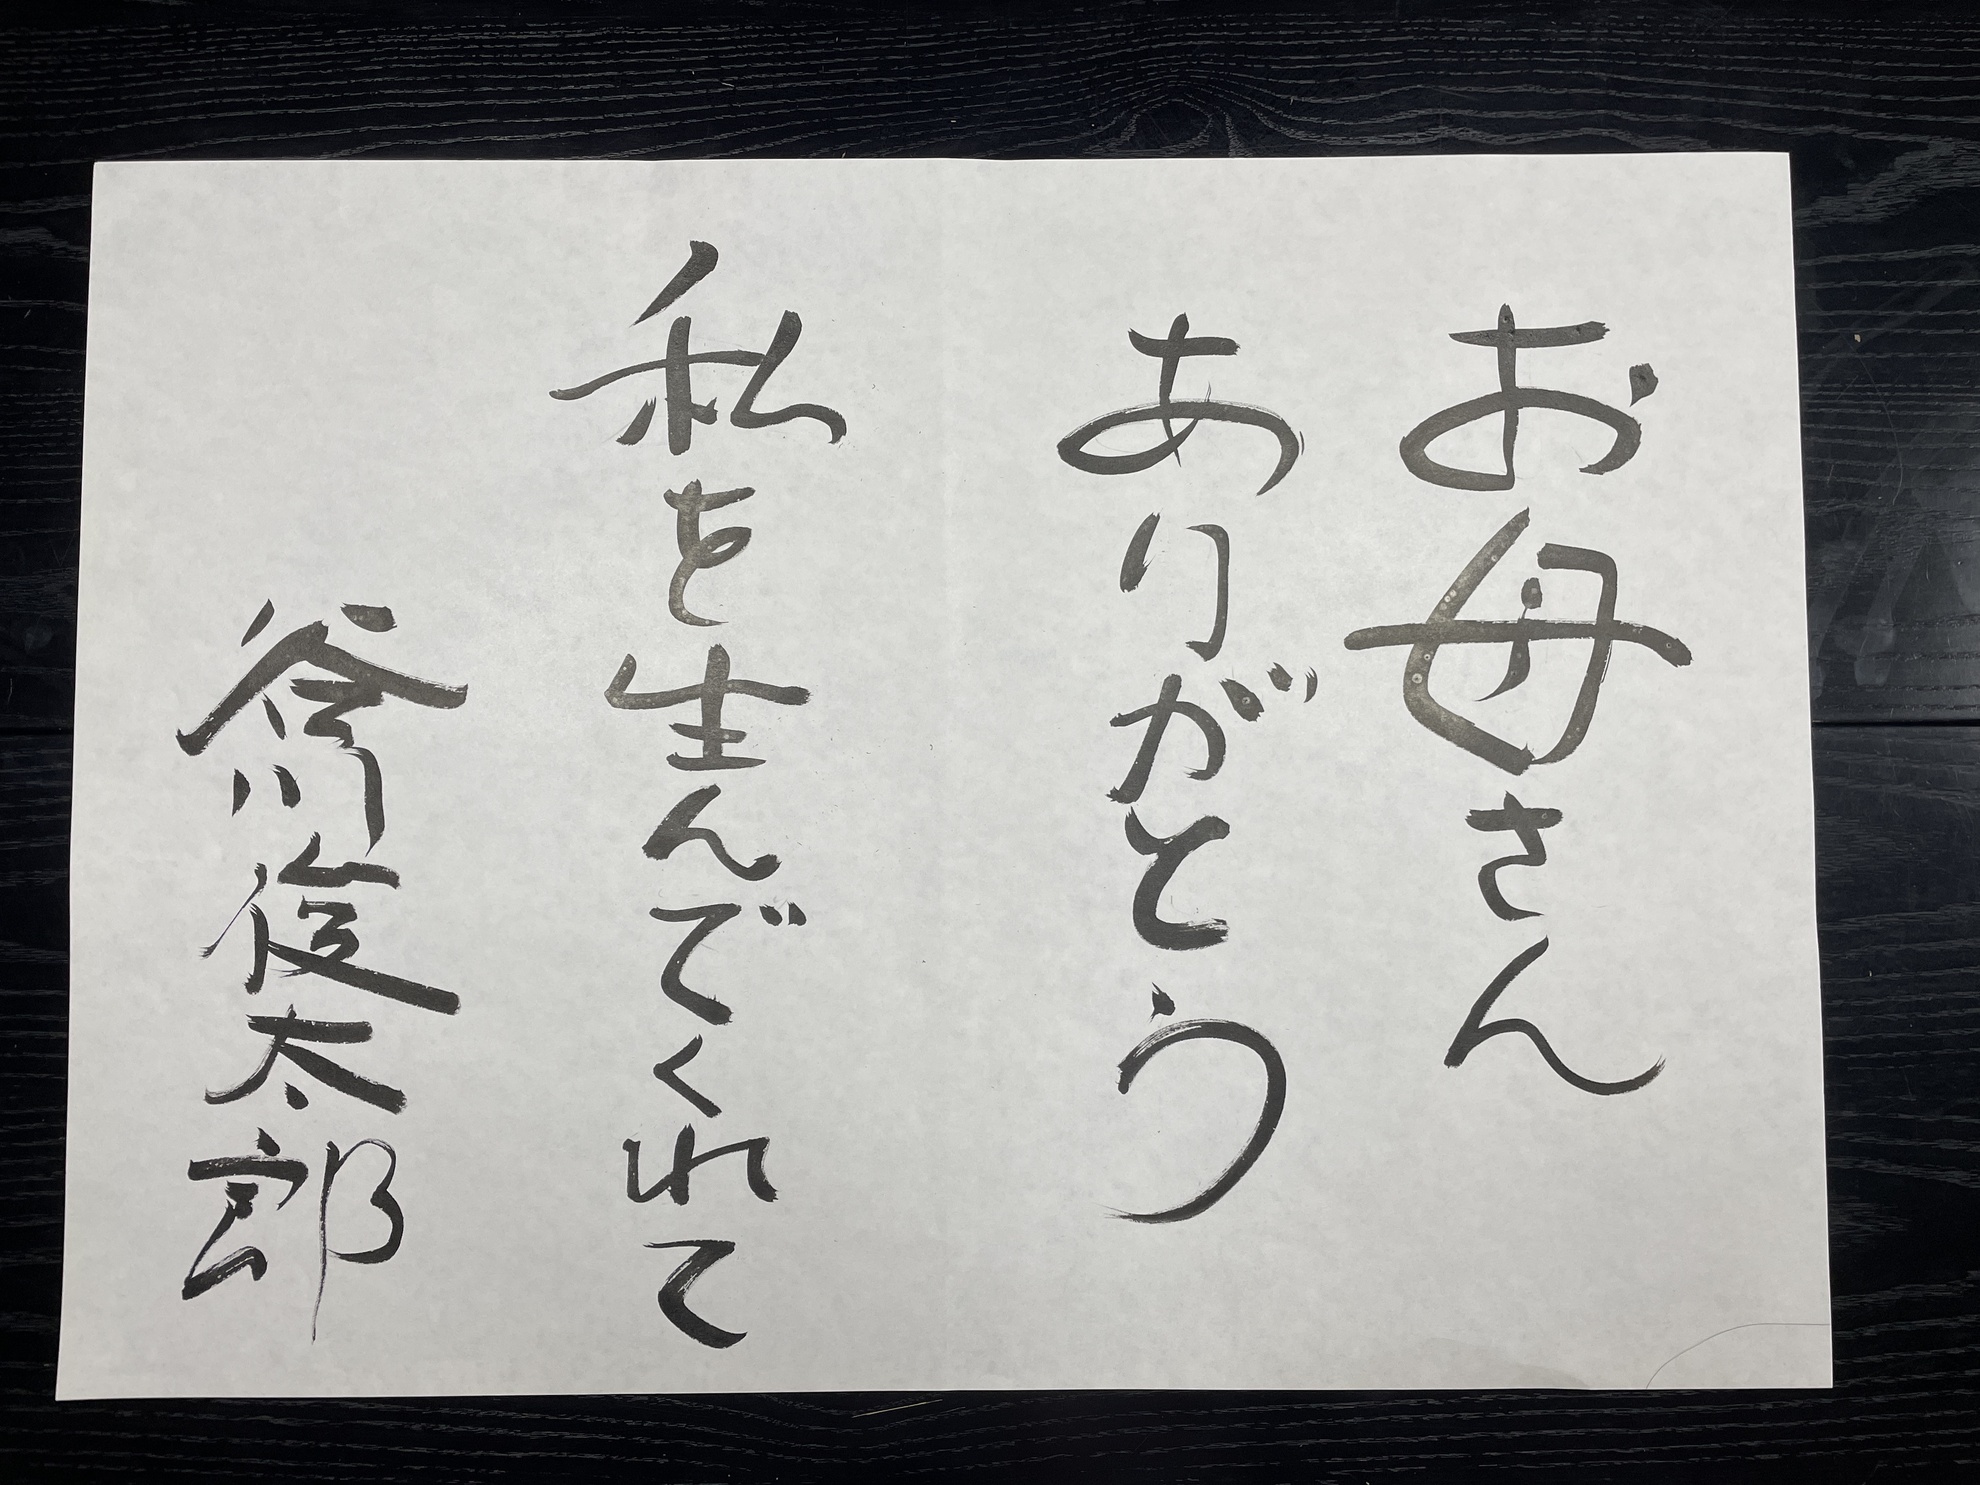 お母さん
ありがとう
私を生んでくれて
谷川俊太郎